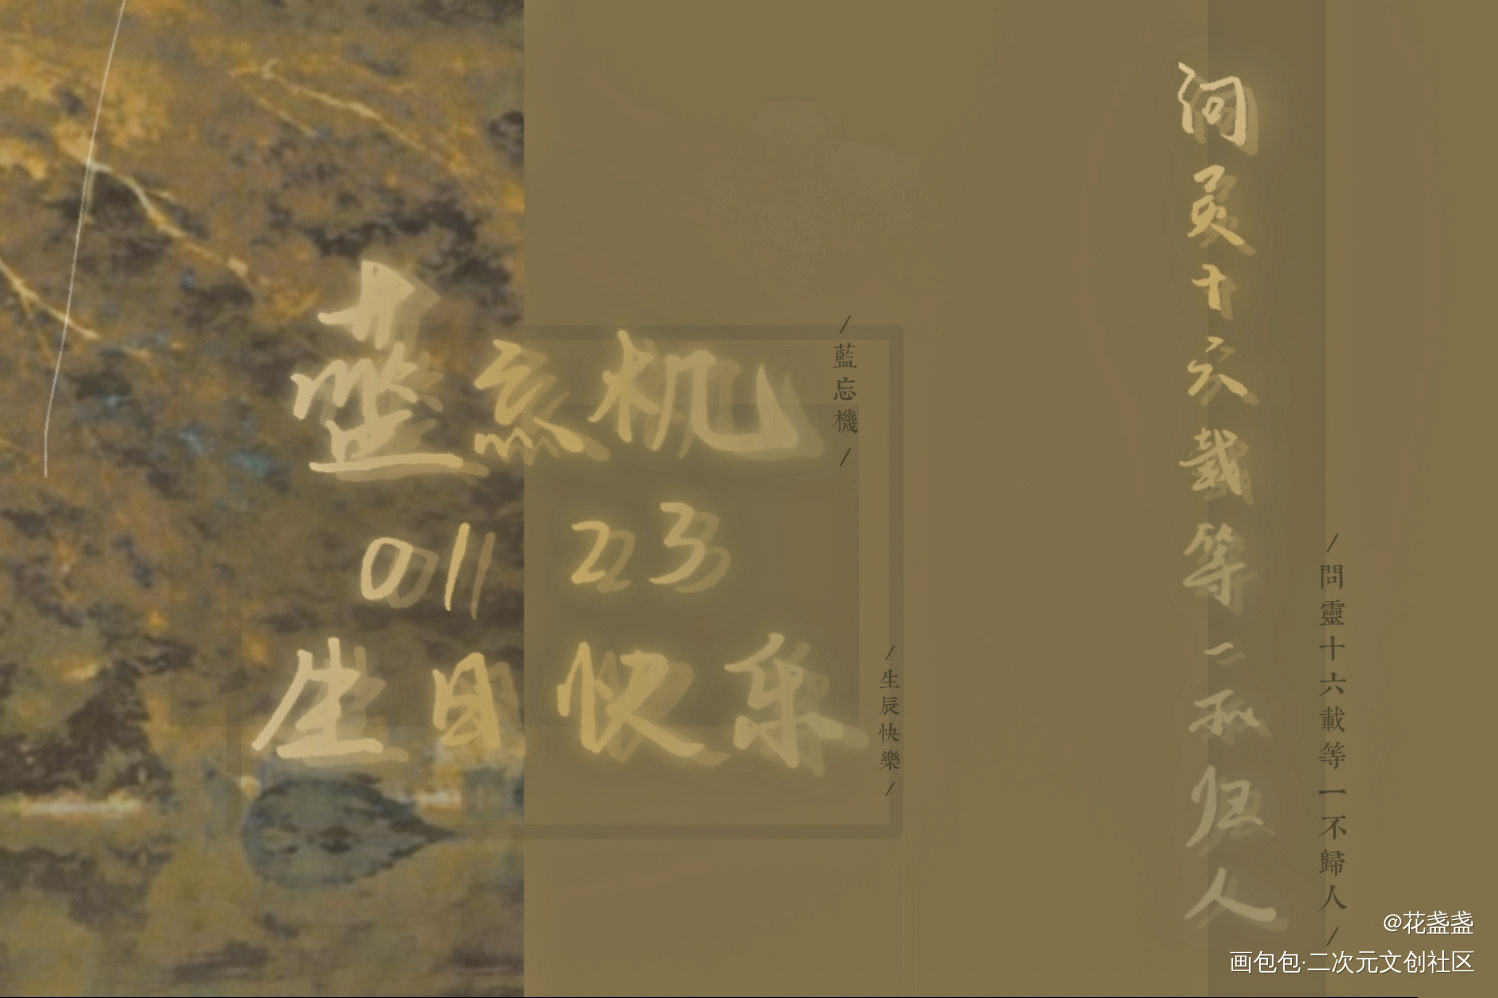 蓝忘机
01 23
生日快乐
/藍忘機/
/生辰快樂/
问灵十六载等一不归人
/問靈十六載等一不歸人/
@花盏盏
画包包·二次元文创社区